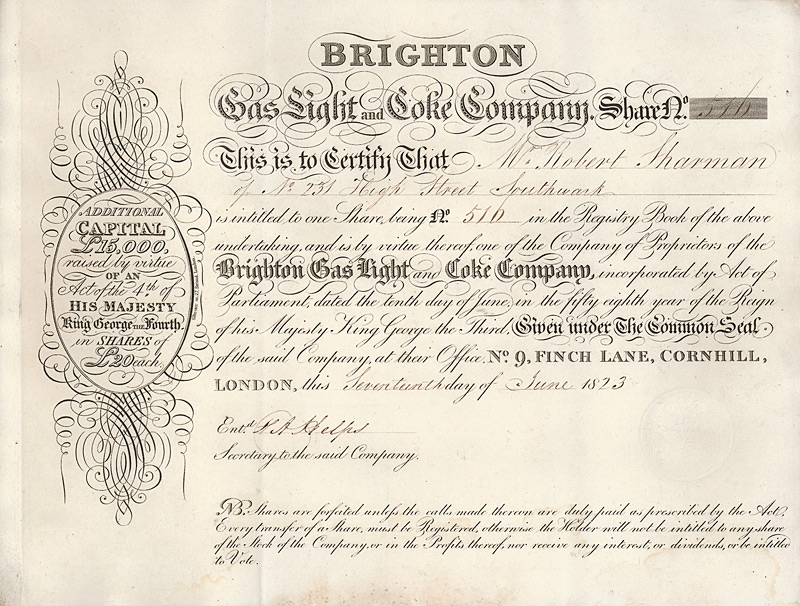 BRIGHTON
Gas Light and Coke Company. Share No. 516
This is to Certify That Mr. Robert Sharman
of No 231 High Street Southwark
is intitled to one Share, being No. 516 in the Registry Book of the above
undertaking, and is by virtue thereof, one of the Company of Proprietors of the
Brighton Gas Light and Coke Company, incorporated by Act of
Parliament, dated the tenth day of June, in the fifty eighth year of the Reign
of his Majesty King George the Third. Given under The Common Seal
of the said Company, at their Office, No. 9, FINCH LANE, CORNHILL,
LONDON, this Seventeenth day of June 1823
Entd.
Secretary to the said Company.
ADDITIONAL
CAPITAL
£15,000.
raised by virtue
OF AN
Act of the 4th. of
HIS MAJESTY
King George THE Fourth.
in SHARES of
£20 each.
NB. Shares are forfeited unless the calls made thereon are duly paid as prescribed by the Act.
Every transfer of a Share, must be Registered, otherwise the Holder will not be intitled to any share
of the Stock of the Company, or in the Profits thereof, nor receive any interest, or dividends, or be intitled
to Vote.